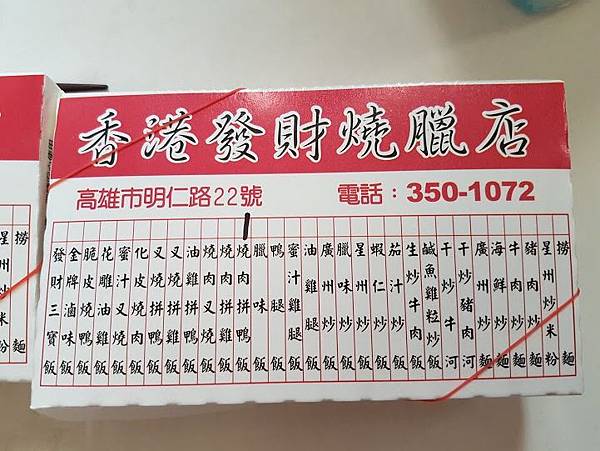 星州炒米粉
撈麵
香港發財燒臘店
高雄市明仁路22號
電話：350-1072
發財三寶飯
金牌滷味飯
脆皮燒鴨飯
花雕油雞飯
蜜汁叉燒飯
化皮燒肉飯
叉燒拼雞飯
叉燒拼鴨飯
油雞拼鴨飯
燒肉叉燒飯
燒肉拼雞飯
燒肉拼鴨飯
臘味飯
鴨腿飯
蜜汁雞腿飯
油雞腿飯
廣州炒飯
臘味炒飯
星州炒飯
蝦仁炒飯
茄汁炒飯
生炒牛肉飯
鹹魚雞粒炒飯
干炒牛河
干炒豬肉河
廣州炒麵
海鮮炒麵
牛肉炒飯
豬肉炒飯
星州炒米粉
撈麵